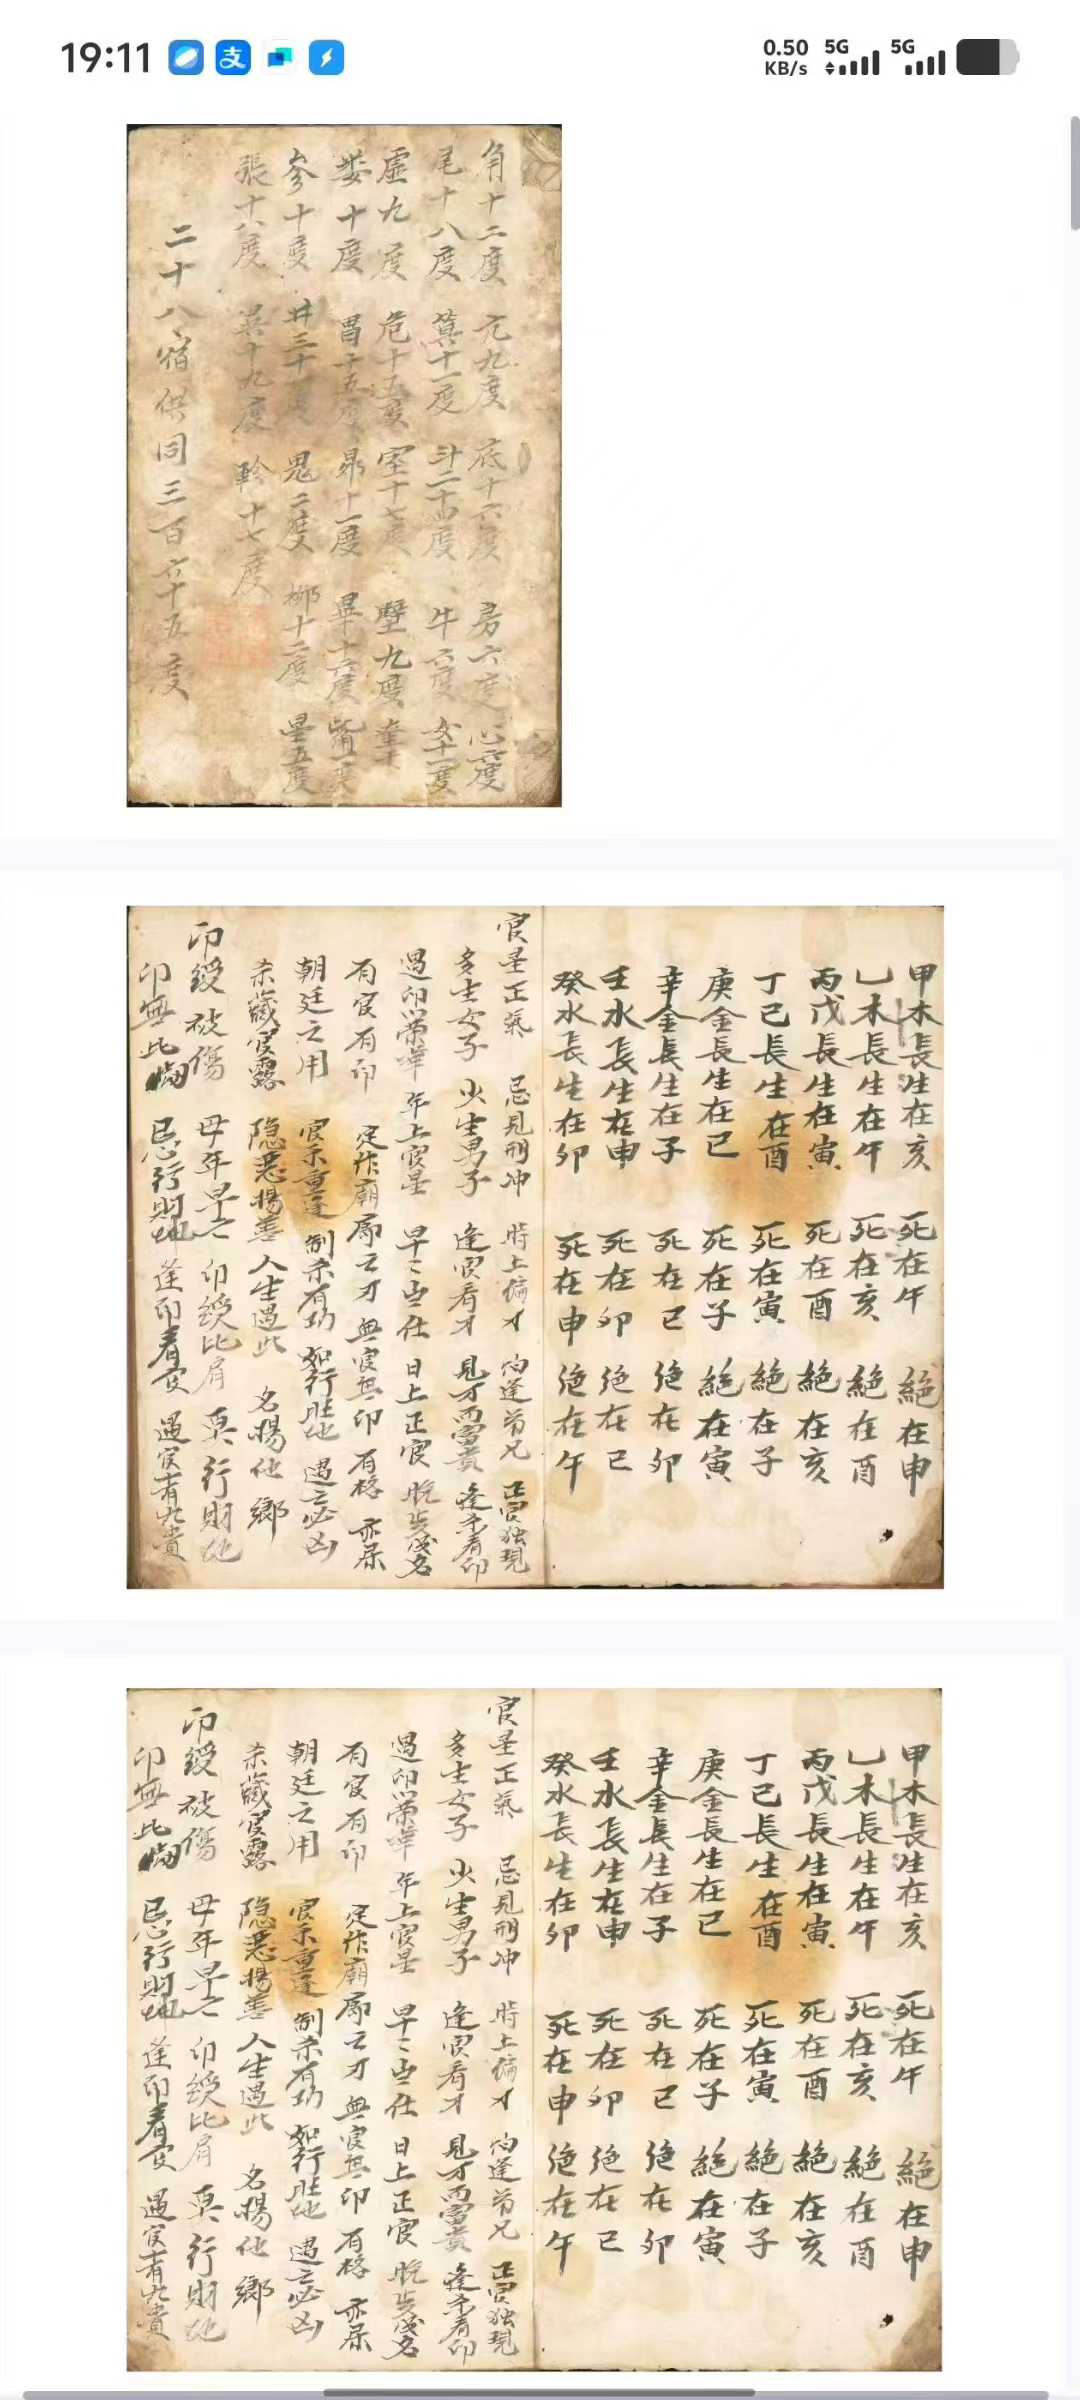 19:11
0.50 KB/s 5G 5G
角十二度 亢九度 底十六度 房六度 心六度
尾十八度 箕十一度 斗二十四度 牛六度 女十一度
虛九度 危十五度 室十七度 壁九度 奎十
娄十度 胃十五度 昴十一度 畢十六度 觜一度
參十度 井三十度 鬼二度 柳十二度 星五度
張十八度 翼十九度 軫十七度
二十八宿供同三百六十五度
甲木長生在亥 死在午 絕在申
乙木長生在午 死在亥 絕在酉
丙戊長生在寅 死在酉 絕在亥
丁己長生在酉 死在寅 絕在子
庚金長生在巳 死在子 絕在寅
辛金長生在子 死在巳 绝在卯
壬水長生在申 死在卯 绝在巳
癸水長生在卯 死在申 绝在午
官星正氣 忌見刑冲 時上偏才 怕逢弟兄 正官独現
多生女子 少生男子 逢官看才 見才而富貴 逢杀看印
遇印榮華 年上官星 早年出仕 日上正官 晚年成名
有官有印 定作廟廊之才 無官無印 有格亦成
朝廷之用 官杀重逢 制杀有功 如行旺地 遇之必凶
杀藏官露 隐恶揚善 人生遇此 名揚他鄉
印綬被傷 母年早亡 印綬比肩 莫行財地
印無比 忌行財地 逢印看官 遇官有九貴
甲木長生在亥 死在午 絕在申
乙木長生在午 死在亥 絕在酉
丙戊長生在寅 死在酉 絕在亥
丁己長生在酉 死在寅 絕在子
庚金長生在巳 死在子 絕在寅
辛金長生在子 死在巳 绝在卯
壬水長生在申 死在卯 绝在巳
癸水長生在卯 死在申 绝在午
官星正氣 忌見刑冲 時上偏才 怕逢弟兄 正官独現
多生女子 少生男子 逢官看才 見才而富貴 逢杀看印
遇印榮華 年上官星 早年出仕 日上正官 晚年成名
有官有印 定作廟廊之才 無官無印 有格亦成
朝廷之用 官杀重逢 制杀有功 如行旺地 遇之必凶
杀藏官露 隐恶揚善 人生遇此 名揚他鄉
印綬被傷 母年早亡 印綬比肩 莫行財地
印無比 忌行財地 逢印看官 遇官有九貴